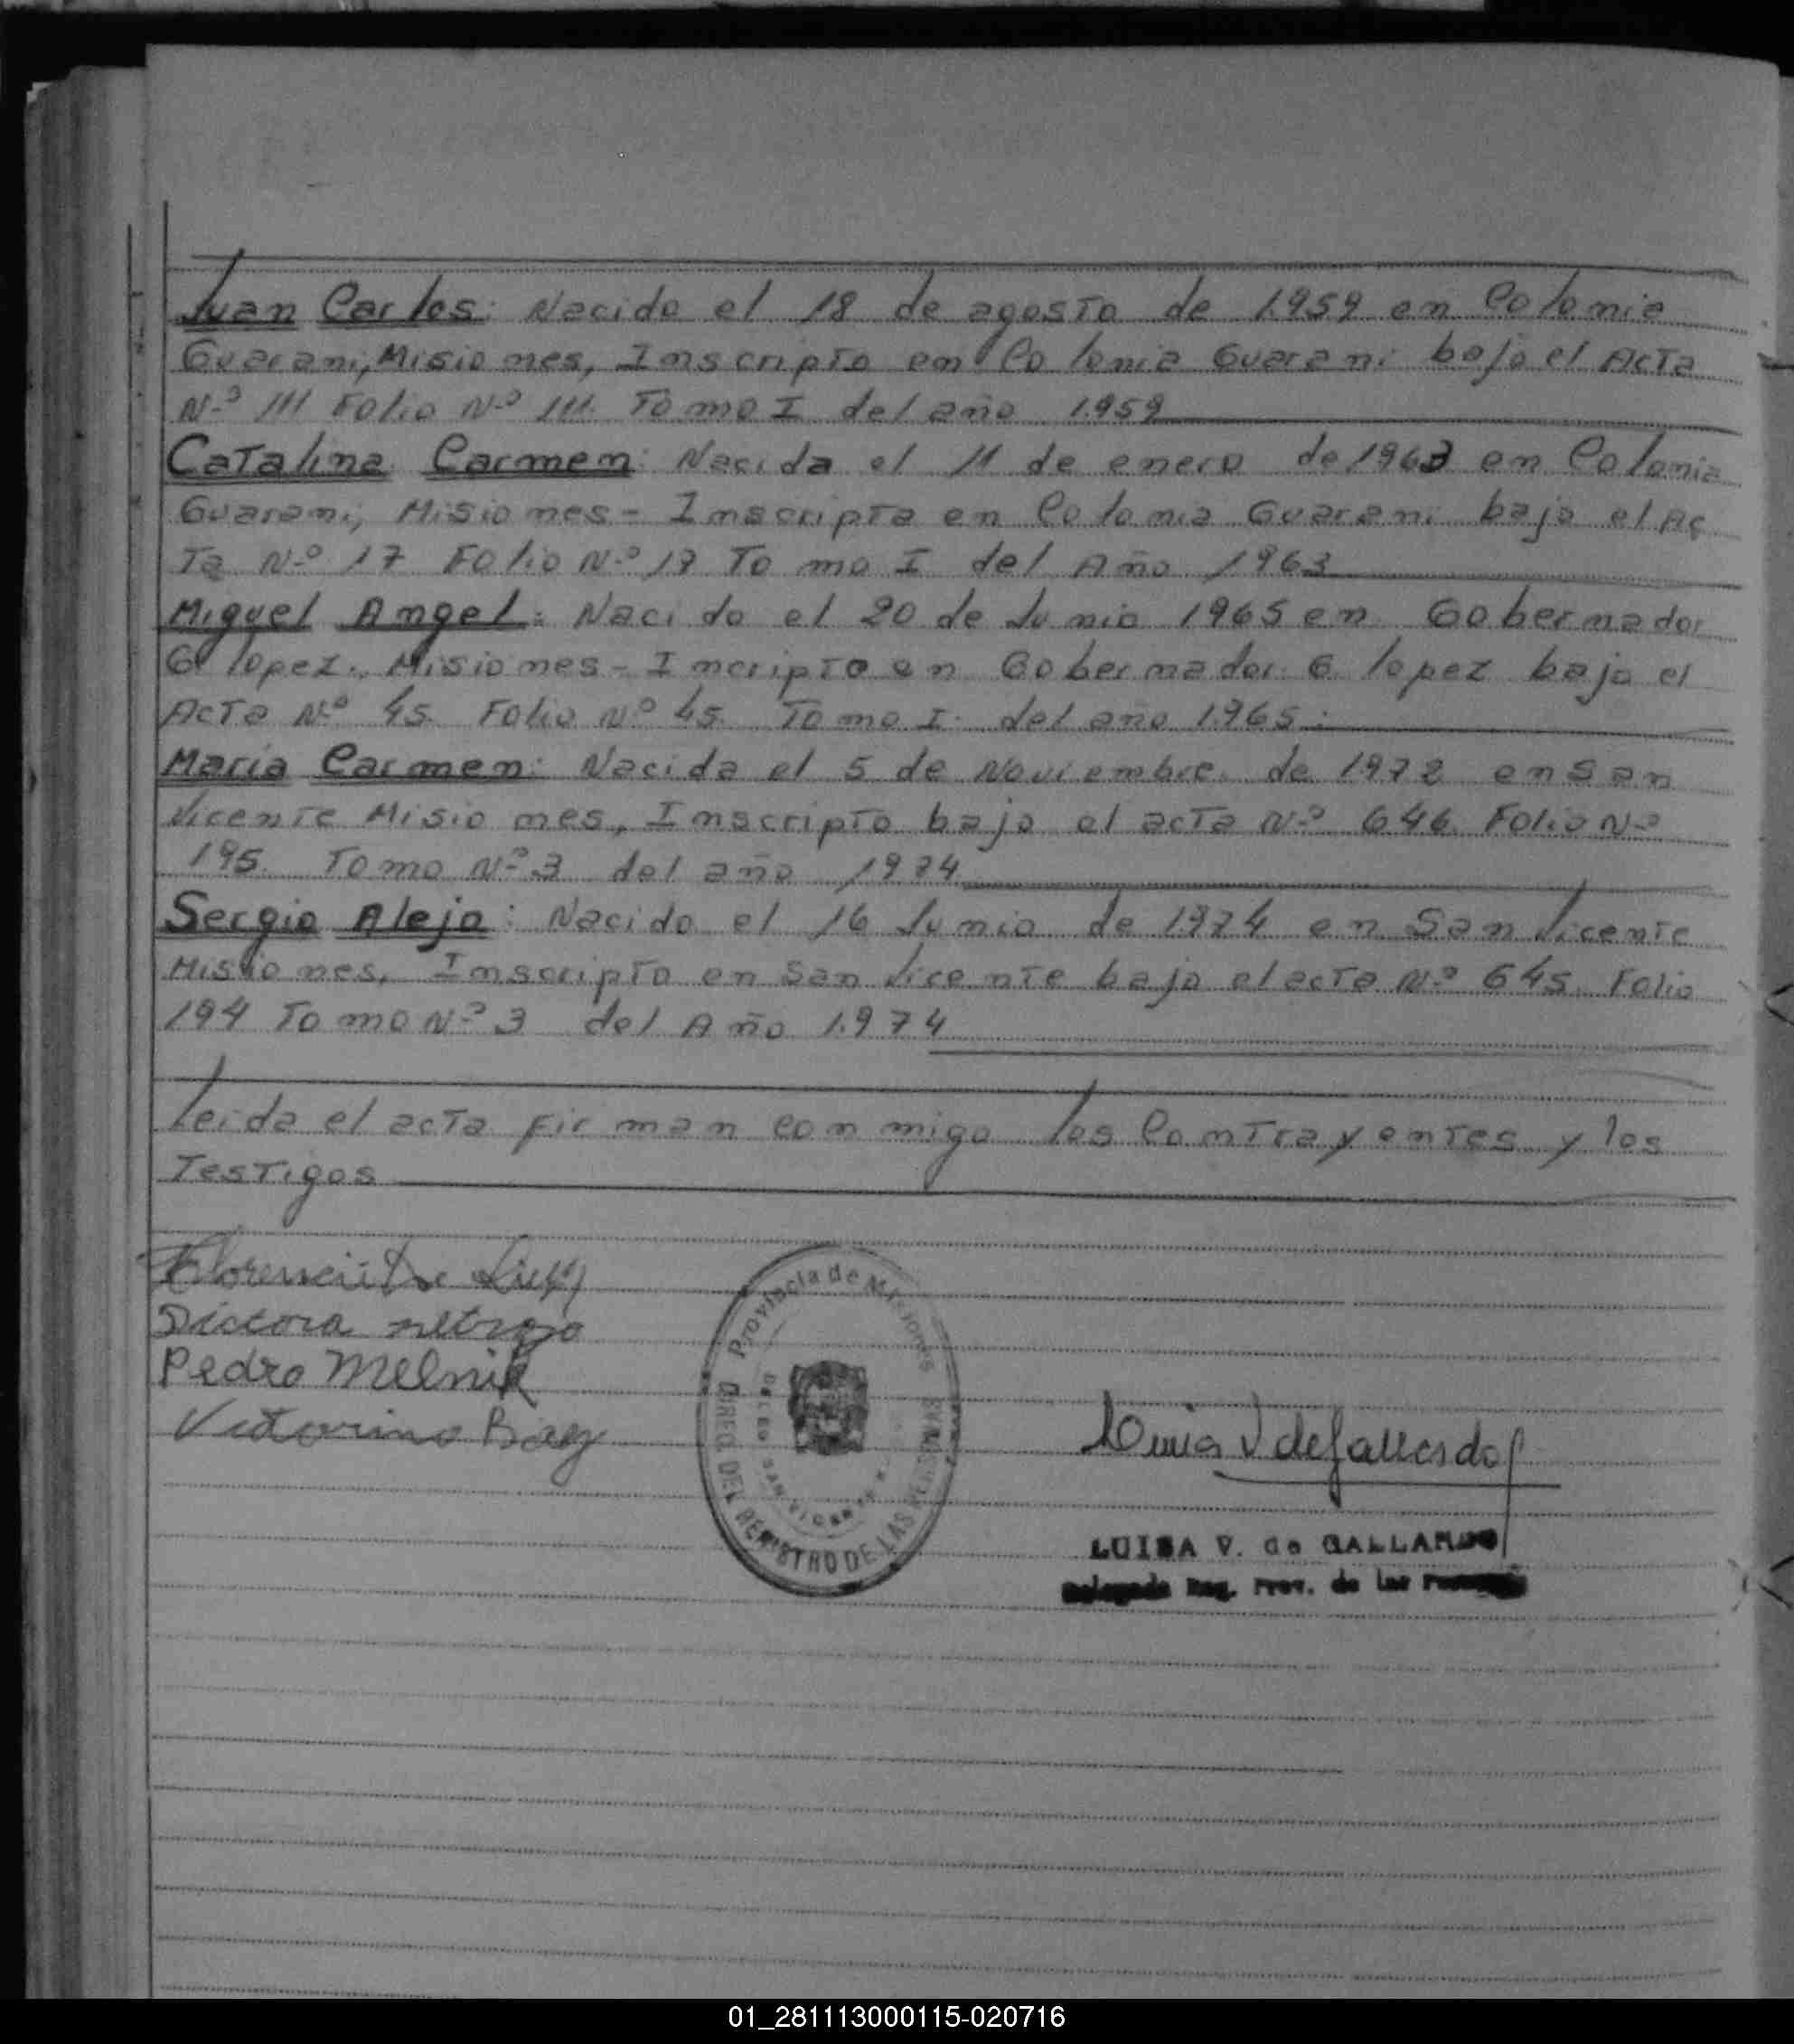 Juan Carlos: Nacido el 18 de agosto de 1.959 en Colonia
Guarani, Misiones, Inscripto en Colonia Guarani bajo el Acta
N-º 111 Folio N-º 111. Tomo I del año 1.959
Catalina Carmen: Nacida el 11 de enero de 1963 en Colonia
Guarani, Misiones - Inscripta en Colonia Guarani bajo el Ac
Ta N-º 17 Folio N-º 17 Tomo I del Año 1963
Miguel Angel: Nacido el 20 de Junio 1965 en Gobernador
G lopez. Misiones - Incripto en Gobernador G. lopez bajo el
Acta Nº 45 Folio Nº 45. Tomo I. del año 1.965.
Maria Carmen: Nacida el 5 de Noviembre de 1972 en San
Vicente Misiones, Inscripto bajo el acta N-º 646 Folio N-º
195. Tomo N-º 3 del año 1974
Sergio Alejo: Nacido el 16 Junio de 1974 en San Vicente
Misiones, Inscripto en San Vicente bajo el acta N-º 645 Folio
194 Tomo N-º 3 del Año 1.974
Leida el acta firman conmigo los Contrayentes y los
Testigos
Pedro Melnik
Victorino Baez
Provincia de Misiones
DIREC. DEL REGISTRO DE LAS PERSONAS
LUISA V. de GALLARDO
Reg. Prov. de las
01_281113000115-020716